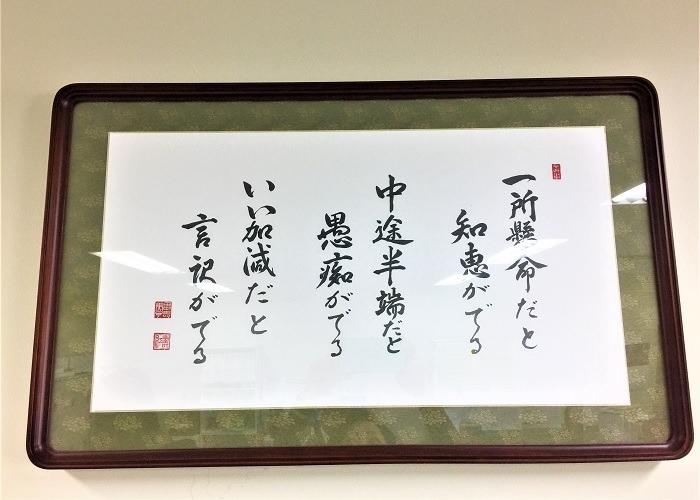 一所懸命だと
知恵がでる
中途半端だと
愚痴がでる
いい加減だと
言訳がでる